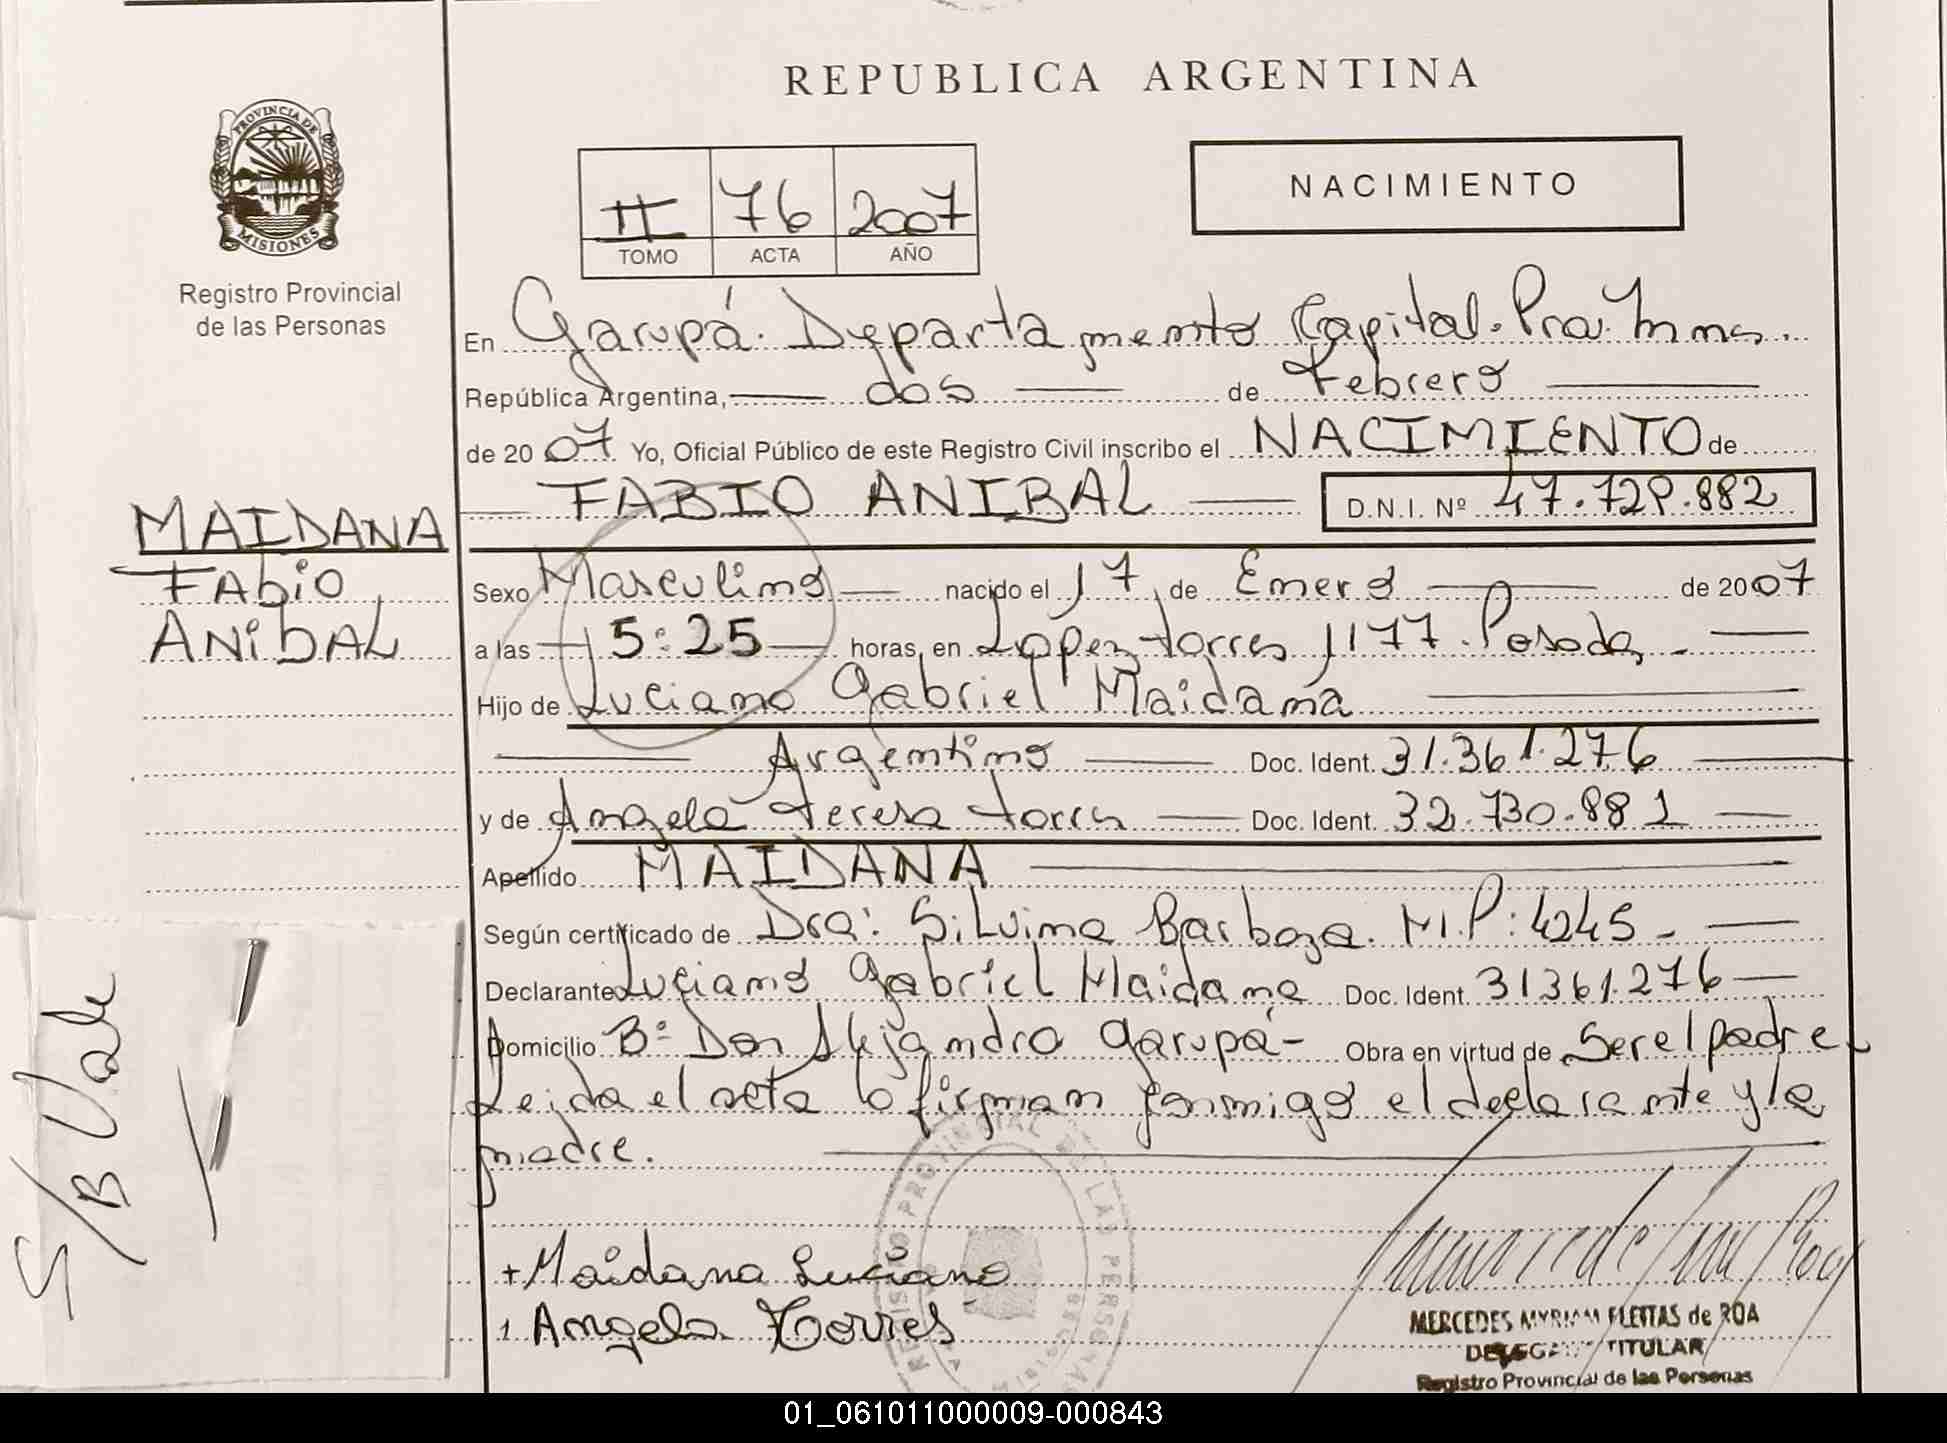 REPUBLICA ARGENTINA
PROVINCIA DE
MISIONES
Registro Provincial
de las Personas
II 76 2007
TOMO ACTA AÑO
NACIMIENTO
En Garupá. Departamento Capital. Mnes.
República Argentina, dos de Febrero
de 2007 Yo, Oficial Público de este Registro Civil inscribo el NACIMIENTO de
FABIO ANIBAL D.N.I. Nº 47.729.882
MAIDANA
Fabio
ANibAL
Sexo Masculino nacido el 17 de Enero de 2007
a las 15:25 horas, en Lopez torres 1177. Posadas
Hijo de Luciano Gabriel Maidana
Argentino Doc. Ident. 31.361.276
y de Angela Teresa torres Doc. Ident. 32.730.881
Apellido MAIDANA
Según certificado de Dra: Silvina Barboza. M.P: 4245
Declarante Luciano Gabriel Maidana Doc. Ident. 31361.276
Domicilio Bº Don Alejandro Garupá- Obra en virtud de Ser el padre
Leida el acta lo firman conmigo el declarante y la
madre.
S/B Vale
+ Maidana Luciano
1. Angela Torres
REGISTRO PROVINCIAL DE LAS PERSONAS
MERCEDES MYRIAM FLEITAS de ROA
DELEGADA TITULAR
Registro Provincial de las Personas
01_061011000009-000843